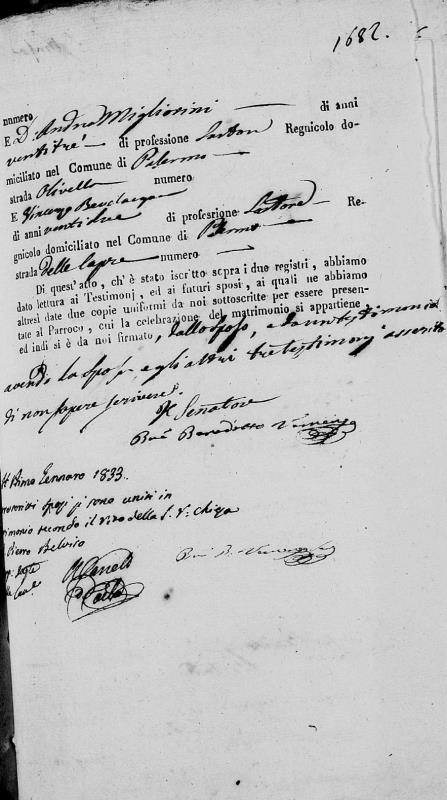 1682.
numero
E D. Andrea Migliorini di anni
ventitrè di professione Sartore Regnicolo do-
miciliato nel Comune di Palermo
strada Olivella numero
E Vincenzo
di anni ventidue di professione Sartore Re-
gnicolo domiciliato nel Comune di Palermo
strada delle Capre numero
Di quest'atto, ch'è stato iscritto sopra i due registri, abbiamo
dato lettura ai Testimonj, ed ai futuri sposi, ai quali ne abbiamo
altresì date due copie uniformi da noi sottoscritte per essere presen-
tate al Parroco, cui la celebrazione del matrimonio si appartiene
ed indi si è da noi firmato, dallo sposo, e da un testimonio
avendo la Sposa e gli altri tre testimonj asserito
di non sapere scrivere.
Il Senatore
Benedetto
Primo Gennaro 1833.
sposi si sono uniti in
secondo il rito della S. Chiesa
Pietro